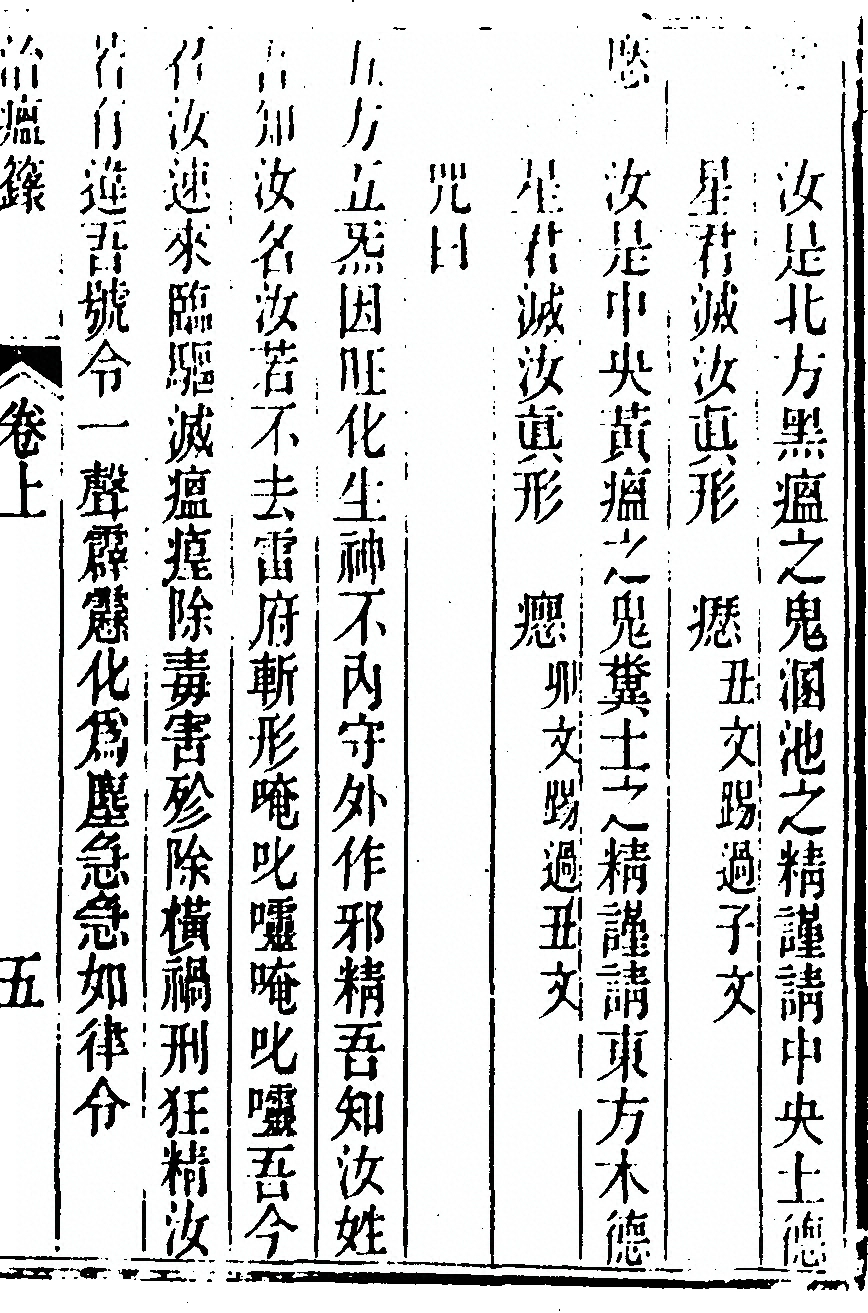 汝是北方黑瘟之鬼溷池之精謹請中央土德
星君滅汝真形 丑文踢過子文
汝是中央黃瘟之鬼糞土之精謹請東方木德
星君滅汝真形 卯文踢過丑文
咒曰
五方五炁因旺化生神不內守外作邪精吾知汝姓
吾知汝名汝若不去雷府斬形唵叱𡃤唵叱𡃤吾今
召汝速來臨驅滅瘟㾮除毒害殄除橫禍刑狂精汝
若有違吾號令一聲霹靂化為塵急急如律令
治瘟籙 卷上 五